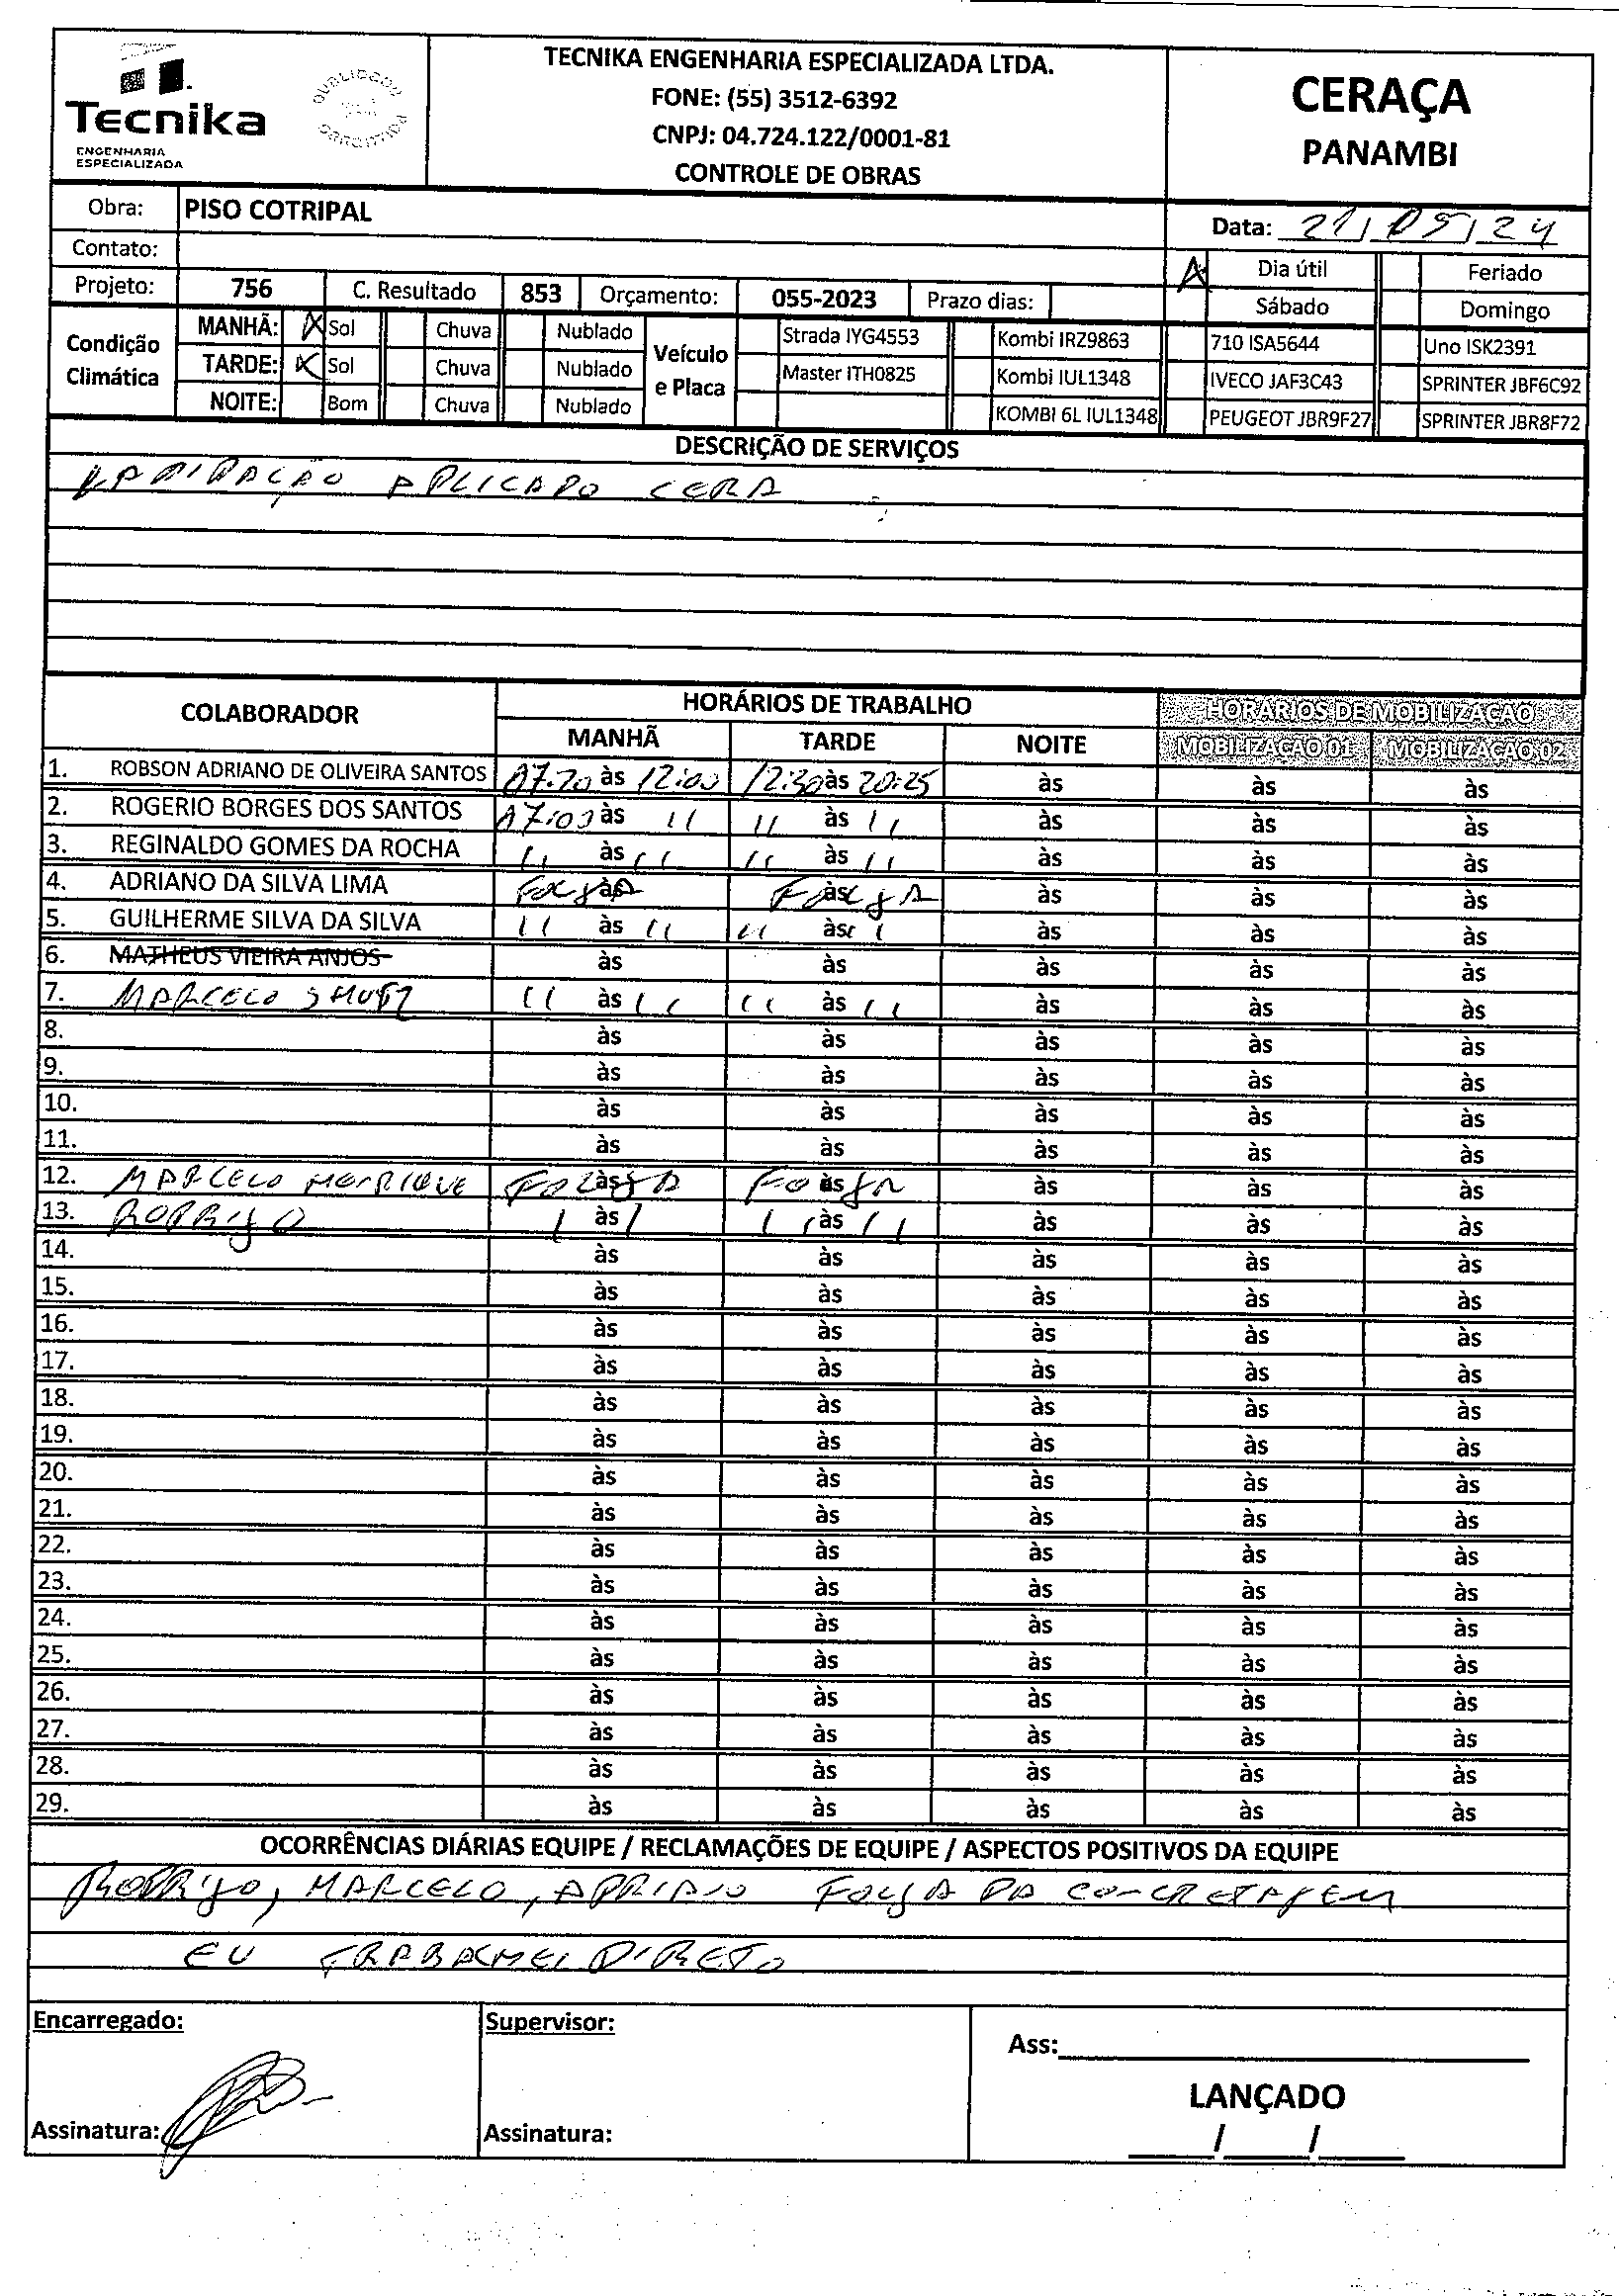 Tecnika
ENGENHARIA
ESPECIALIZADA
QUALIDADE
GARANTIDA
TECNIKA ENGENHARIA ESPECIALIZADA LTDA.
FONE: (55) 3512-6392
CNPJ: 04.724.122/0001-81
CONTROLE DE OBRAS
CERAÇA
PANAMBI
Obra: PISO COTRIPAL
Data: 21/05/24
Contato:
Dia útil Feriado
Projeto: 756 C. Resultado 853 Orçamento: 055-2023 Prazo dias:
Sábado Domingo
Condição Climática
MANHÃ: X Sol Chuva Nublado
TARDE: X Sol Chuva Nublado
NOITE: Bom Chuva Nublado
Veículo e Placa
Strada IYG4553 Kombi IRZ9863 710 ISA5644 Uno ISK2391
Master ITH0825 Kombi IUL1348 IVECO JAF3C43 SPRINTER JBF6C92
KOMBI 6L IUL1348 PEUGEOT JBR9F27 SPRINTER JBR8F72
DESCRIÇÃO DE SERVIÇOS
APLICADO CERA
COLABORADOR HORÁRIOS DE TRABALHO HORÁRIOS DE MOBILIZAÇÃO
MANHÃ TARDE NOITE MOBILIZAÇÃO 01 MOBILIZAÇÃO 02
1. ROBSON ADRIANO DE OLIVEIRA SANTOS 07:20 às 12:00 12:30 às 20:25 às às às
2. ROGERIO BORGES DOS SANTOS 07:00 às 11 11 às 11 às às às
3. REGINALDO GOMES DA ROCHA 11 às 11 11 às 11 às às às
4. ADRIANO DA SILVA LIMA FOLGA às FOLGA às às às às
5. GUILHERME SILVA DA SILVA 11 às 11 11 às 11 às às às
6. MATHEUS VIEIRA ANJOS às às às às às
7. MARCELO 11 às 11 11 às 11 às às às
8. às às às às às
9. às às às às às
10. às às às às às
11. às às às às às
12. MARCELO HENRIQUE FOLGA às FOLGA às às às às
13. RODRIGO 1 às 1 11 às 11 às às às
14. às às às às às
15. às às às às às
16. às às às às às
17. às às às às às
18. às às às às às
19. às às às às às
20. às às às às às
21. às às às às às
22. às às às às às
23. às às às às às
24. às às às às às
25. às às às às às
26. às às às às às
27. às às às às às
28. às às às às às
29. às às às às às
OCORRÊNCIAS DIÁRIAS EQUIPE / RECLAMAÇÕES DE EQUIPE / ASPECTOS POSITIVOS DA EQUIPE
RODRIGO, MARCELO, ADRIANO FOLGA DA CONCRETAGEM
EU TRABALHEI DIRETO
Encarregado: Supervisor:
Ass:
LANÇADO
Assinatura: Assinatura: / /